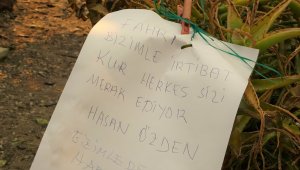 FAHRİ
BİZİMLE İRTİBAT
KUR HERKES SİZİ
MERAK EDİYOR
HASAN ÖZDEN